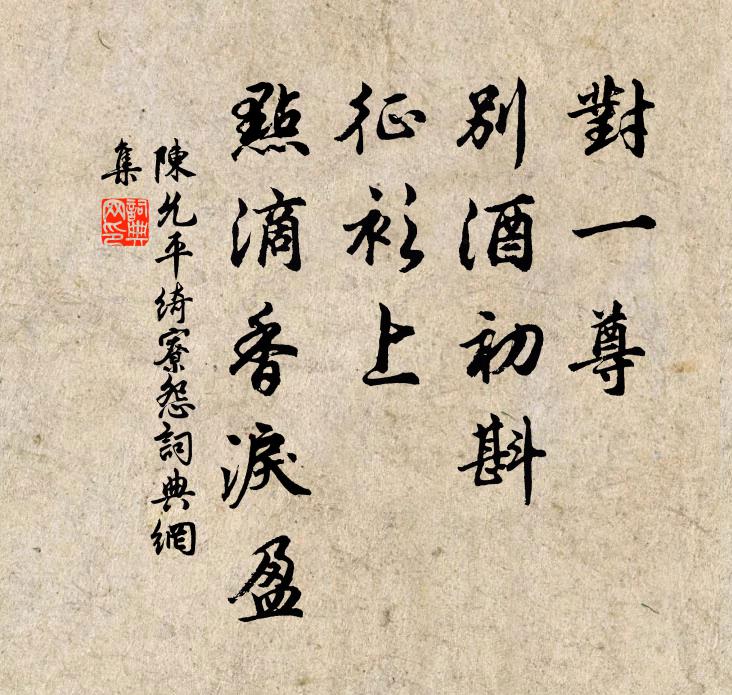 對一尊
別酒初斟
征衫上
點滴香淚盈
陳允平綺寮怨詞典網
集
詞典
网印